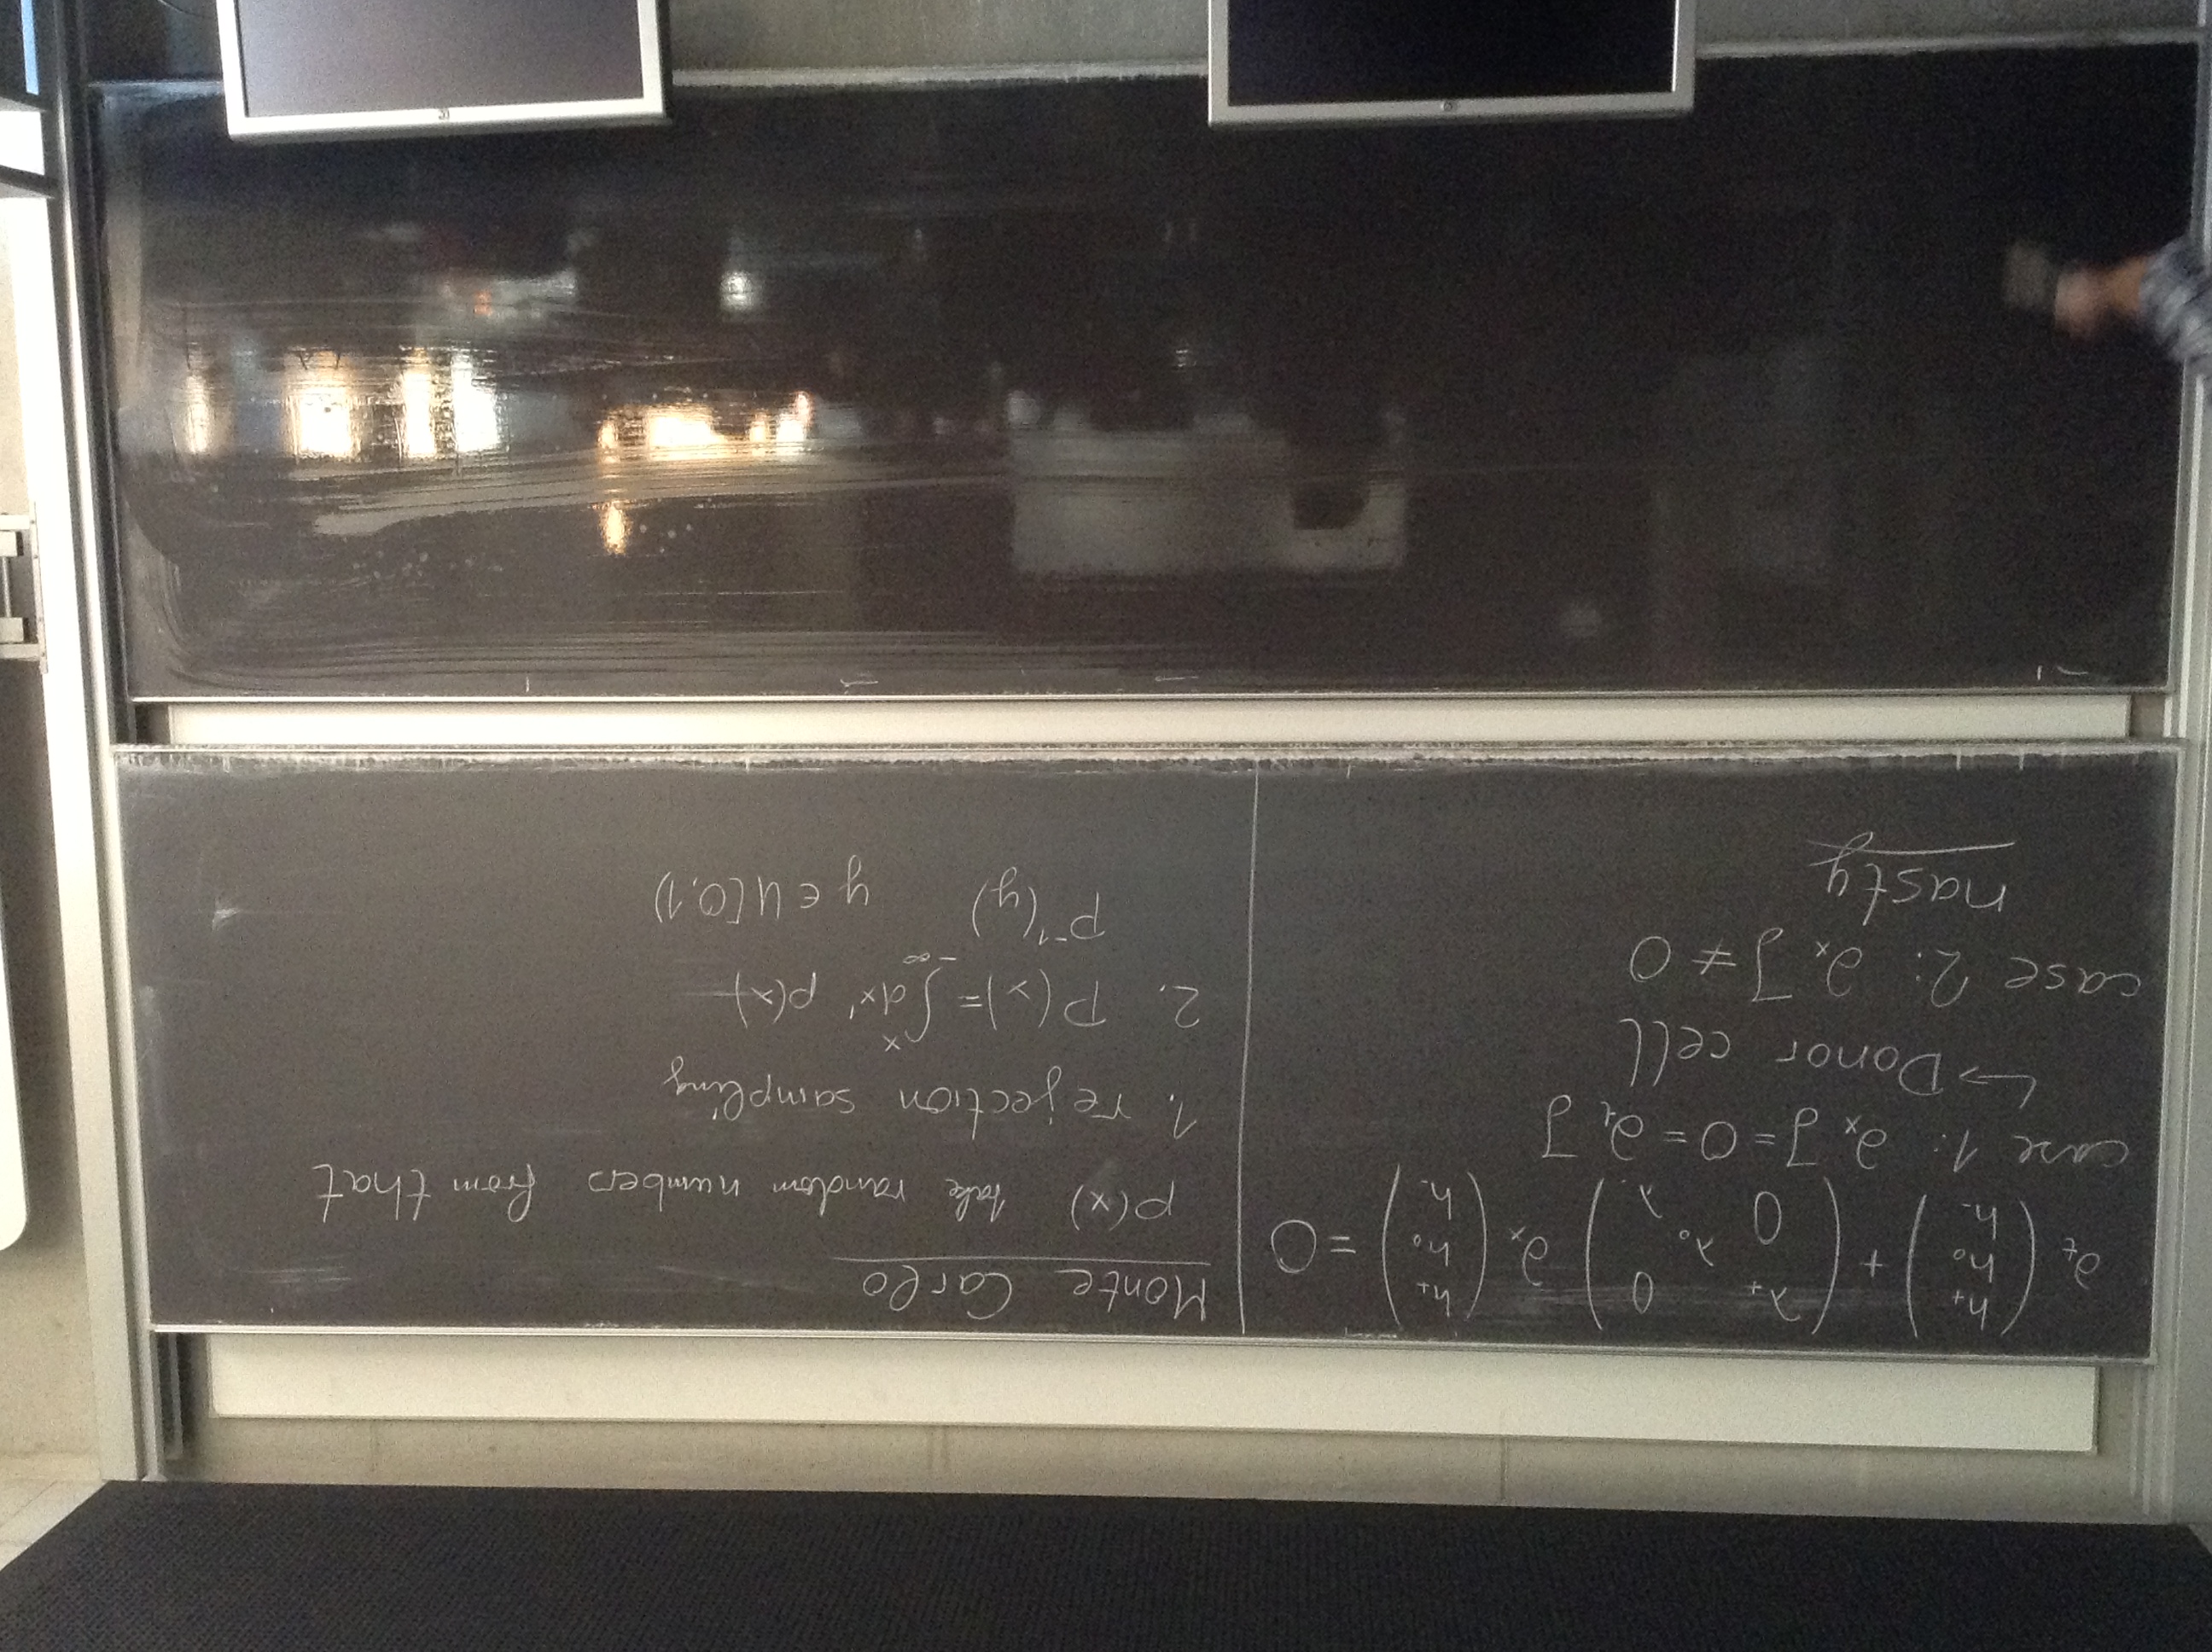 ∂t (h+ h0 h-) + (λ+ 0 λ0 0 λ-) ∂x (h+ h0 h-) = 0
case 1: ∂x J = 0 = ∂t J
↳ Donor cell
case 2: ∂x J ≠ 0
nasty
Monte Carlo
p(x) take random numbers from that
1. rejection sampling
2. P(x) = ∫_{-∞}^{x} dx' p(x)
P⁻¹(y) y ∈ U[0,1)